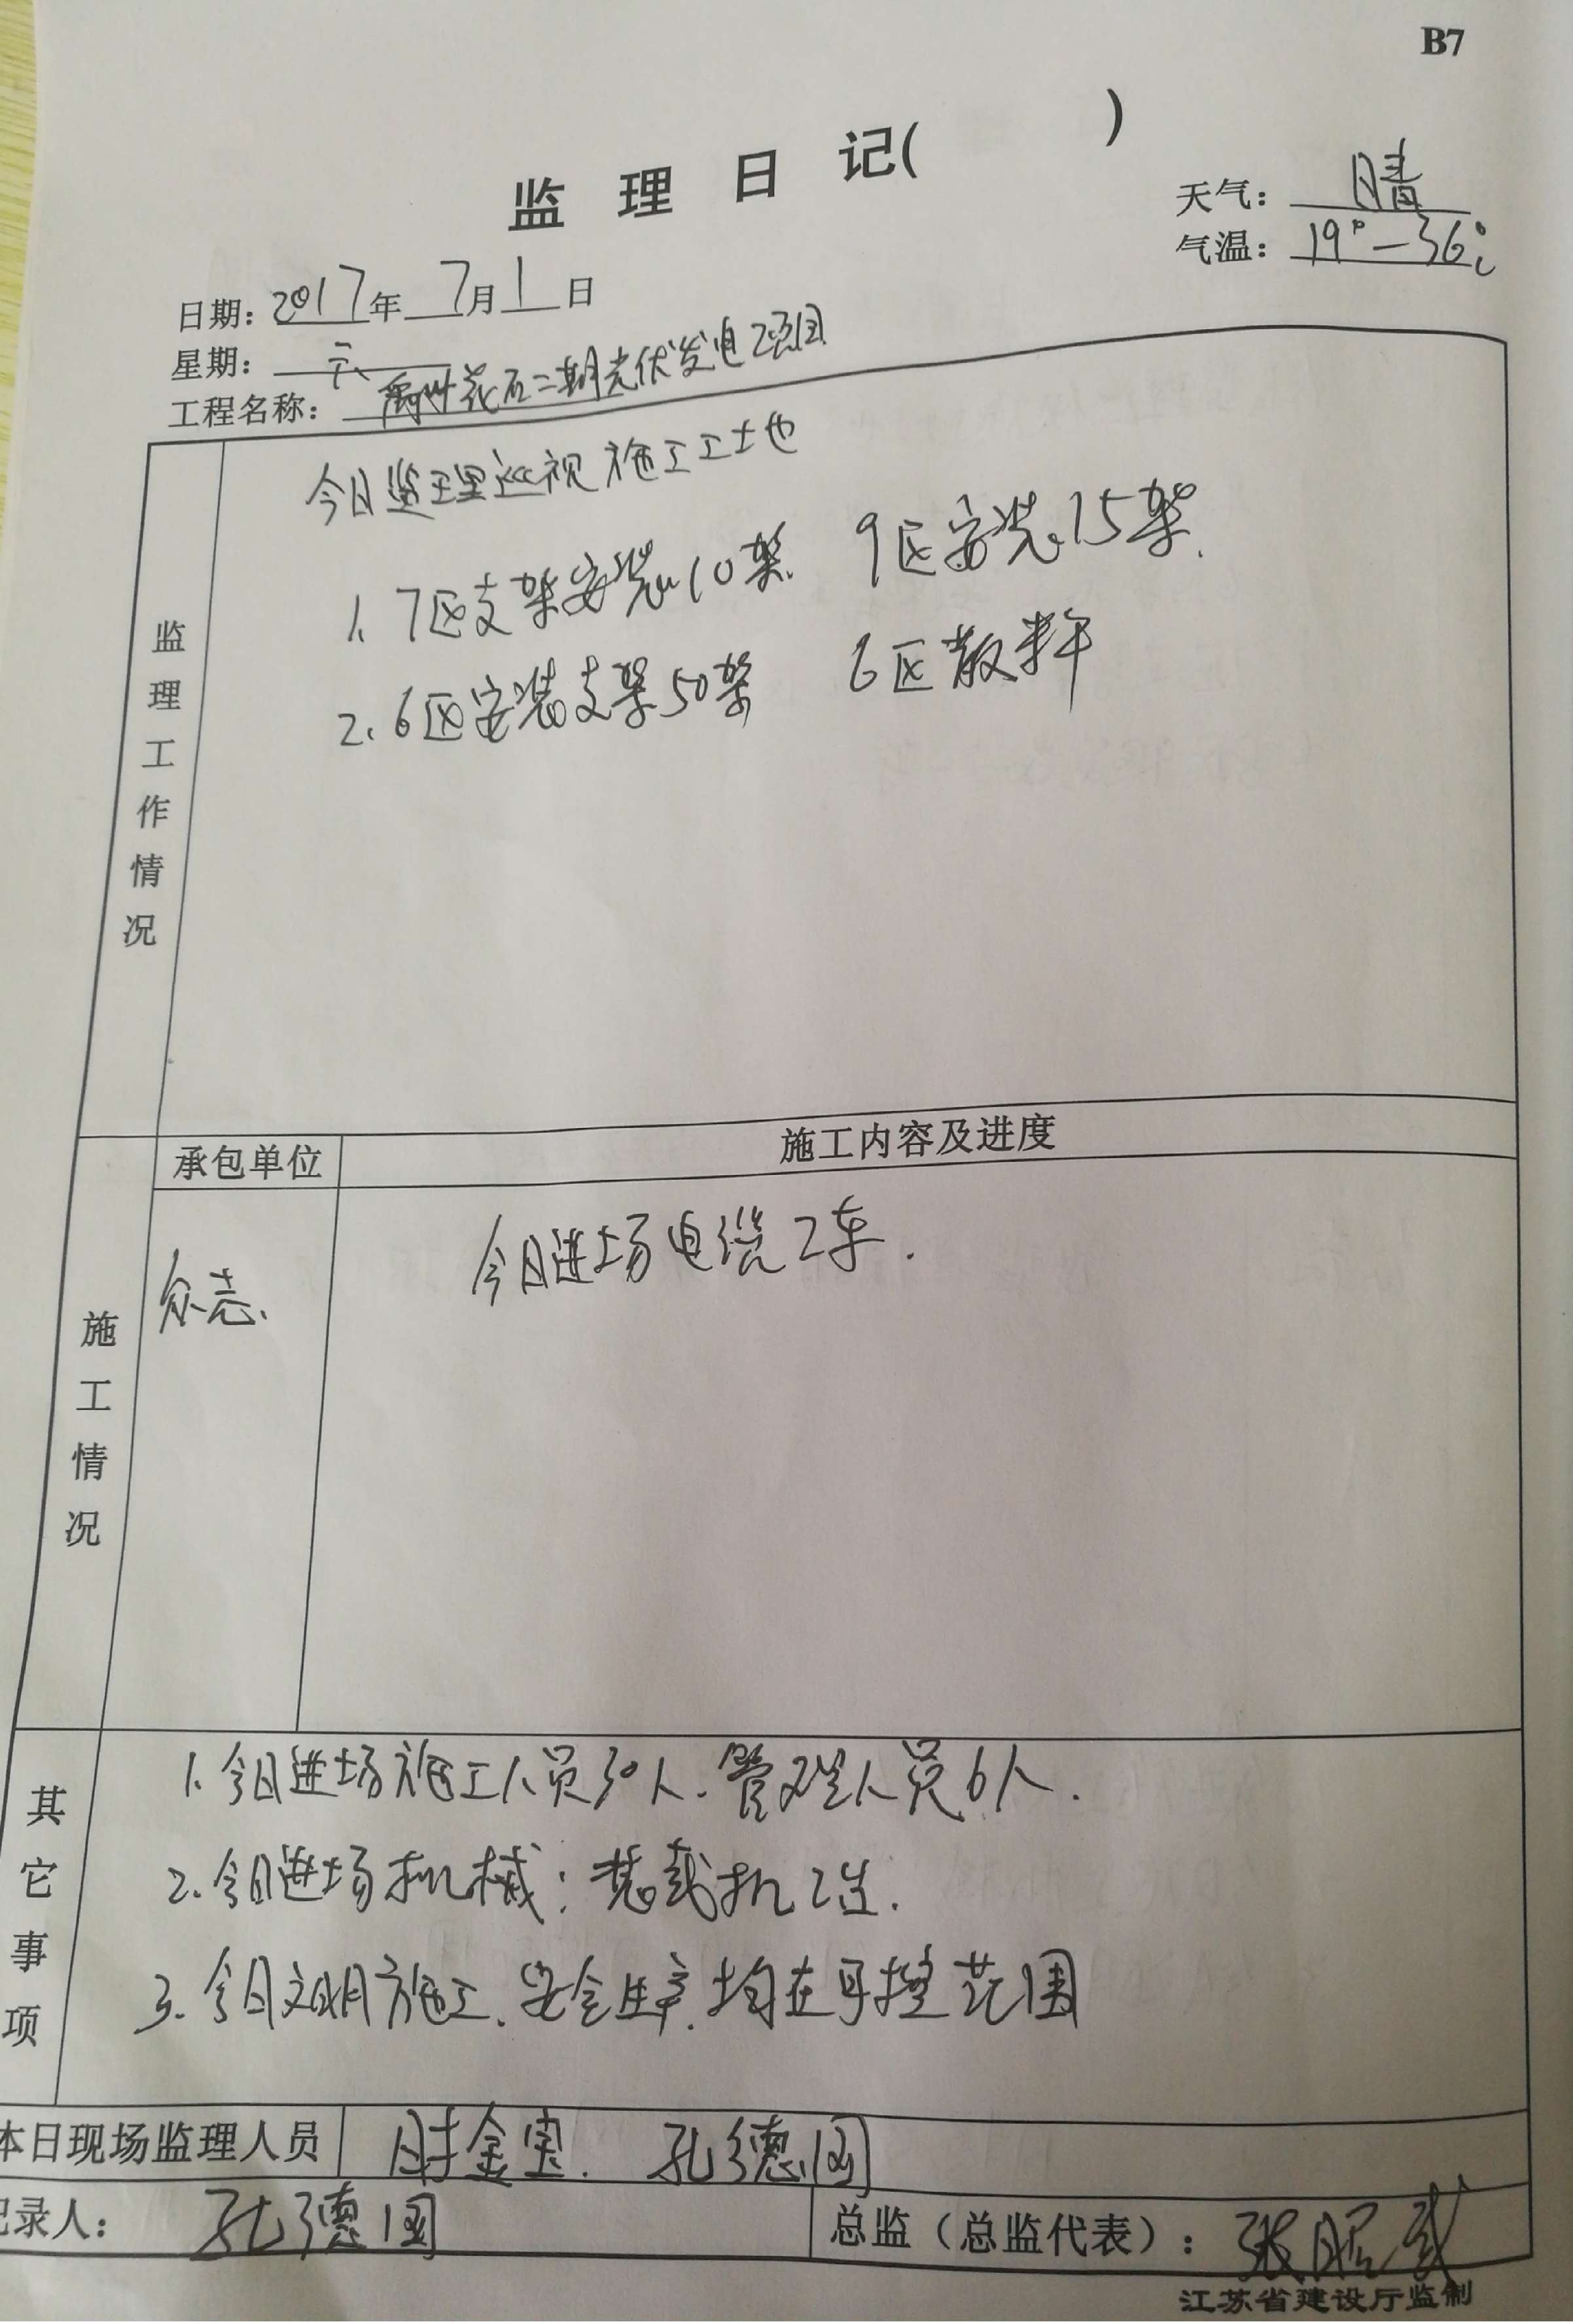 B7
监理日记( )
天气：晴
气温：19°－36℃
日期：2017年7月1日
星期：六
工程名称：禹州花石二期光伏发电项目
今日监理巡视施工工地
1、7区支架安装10架 9区安装15架.
2、6区安装支架50架 6区散料
监理工作情况
承包单位 施工内容及进度
众志、 今日进场电缆2车.
施工情况
1、今日进场施工人员30人、管理人员6人.
2、今日进场机械：装载机2台.
3、今日文明施工、安全生产、均在可控范围
其它事项
本日现场监理人员 时金宝、孔德国
记录人： 孔德国 总监（总监代表）：张
江苏省建设厅监制